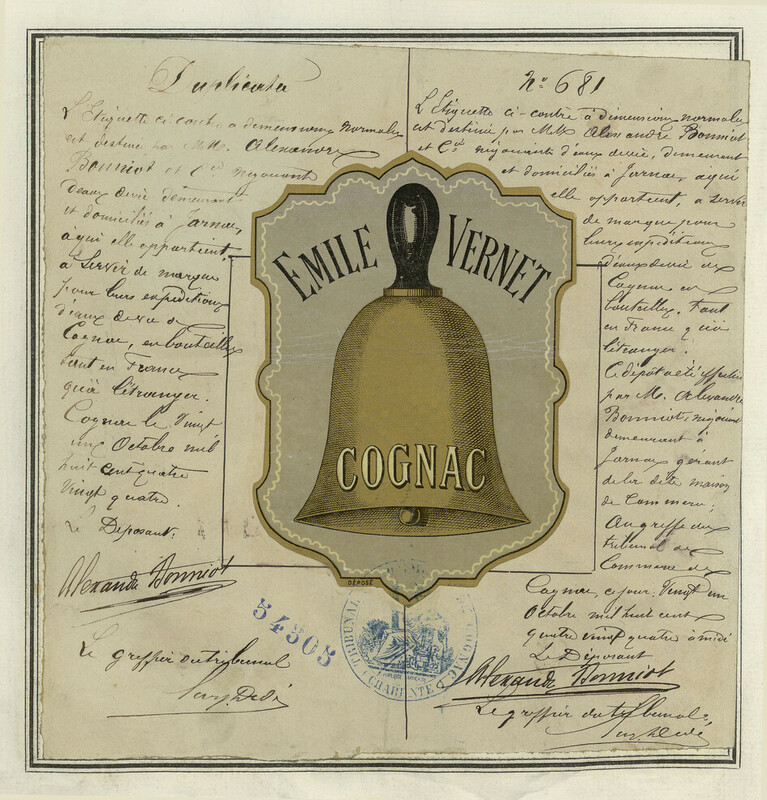 Duplicata
L'Etiquette ci-contre, a dimensions normales
est destiné par MMrs. Alexandre
Bonniot et Cie négociant
d'eaux de vie demeurant
et domiciliés à Jarnac,
à qui elle appartient,
à servir de marque
pour leurs expéditions
d'eaux de vie de
Cognac, en bouteilles
tant en France
qu'à l'étranger.
Cognac le Vingt
un Octobre mil
huit cent quatre
vingt quatre.
Le Déposant:
Alexandre Bonniot
Le greffier du tribunal
No 681
L'Etiquette ci-contre à dimensions normales
est destinée par MMrs Alexandre Bonniot
et Cie négociants d'eaux de vie, demeurant
et domiciliés à Jarnac, à qui
elle appartient, a servir
de marque pour
leurs expéditions
d'eaux de vie de
Cognac en
bouteilles, tant
en France qu'à
l'étranger.
Ce dépôt a été effectué
par M. Alexandre
Bonniot, négociant
demeurant à
Jarnac gérant
de la dite maison
de Commerce;
Au greffe du
tribunal de
Commerce de
Cognac, ce jour, Vingt un
Octobre mil huit cent
quatre vingt quatre à midi
Le Déposant
Alexandre Bonniot
Le greffier du tribunal,
EMILE VERNET
COGNAC
DÉPOSÉ
54305
TRIBUNAL
COGNAC
CHARENTE